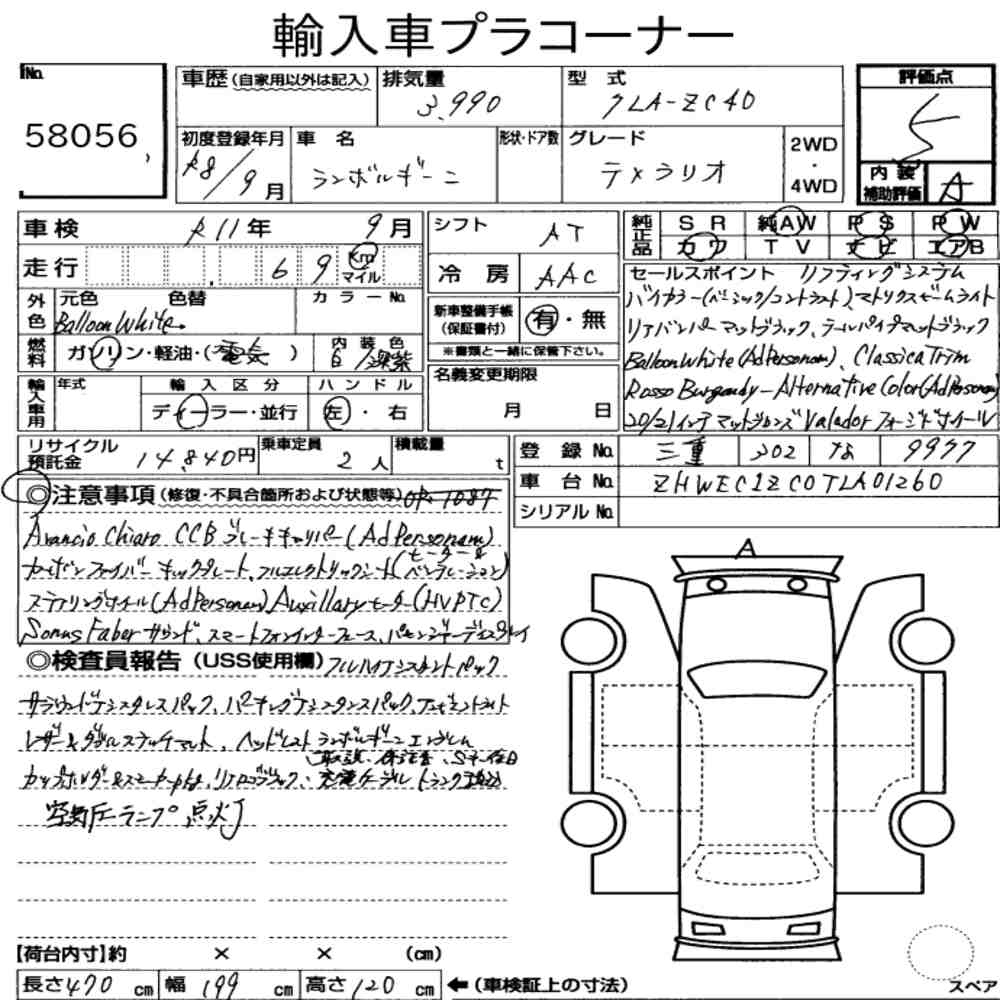 輸入車プラコーナー
No.
58056
車歴(自家用以外は記入)
排気量
3,990
型式
7LA-ZC4D
評価点
5
内装
補助評価
A
初度登録年月
R8/9月
車名
ランボルギーニ
形状・ドア数
グレード
テメラリオ
2WD
・
4WD
車検 R11年 9月
シフト AT
純正品
SR 純AW PS PW
カワ TV ナビ エアB
走行 69 km マイル
冷房 AAC
外色
元色 色替
Balloon White
カラーNo.
新車整備手帳
(保証書付)
有・無
※書類と一緒に保管下さい。
燃料
ガソリン・軽油・(電気)
内装色
白/深紫
輸入車用
年式
輸入区分
ディーラー・並行
ハンドル
左・右
名義変更期限
月 日
セールスポイント リフティングシステム
バイカラー(ベーシック/コントラスト)、マトリクスビームライト
リアバンパーマットブラック、テールパイプマットブラック
Balloon White (Ad Personam)、Classica Trim
Rosso Burgundy - Alternative Color (Ad Personam)
20/21インチマットブロンズ Valador フォージドホイール
リサイクル
預託金
14,840円
乗車定員
2人
積載量
t
登録No. 三重 302 な 9977
車台No. ZHWEC1ZC0TLA01260
シリアルNo.
◎注意事項(修復・不具合箇所および状態等) OP.1087
Arancio Chiaro CCB ブレーキキャリパー(Ad Personam)
カーボンファイバーキックプレート、フルエレクトリックシート(ヒーター&ベンチレーション)
ステアリングホイール(Ad Personam) Auxillary ヒーター(HVPTC)
Sonus Faber サウンド、スマートフォンインターフェース、パセンジャーディスプレイ
◎検査員報告(USS使用欄) フルハイアシスタントパック
サラウンドアシスタンスパック、パーキングアシスタンスパック、アンビエントライト
レザー&ダブルステッチマット、ヘッドレストランボルギーニエンブレム
(取説、保証書、Sキー後日
カップホルダー&スモーカーpkg、リアロゴブラック、充電ケーブルトランク積込)
空気圧ランプ点灯
A
【荷台内寸】約 × × (cm)
長さ 470 cm 幅 199 cm 高さ 120 cm ←(車検証上の寸法)
スペア